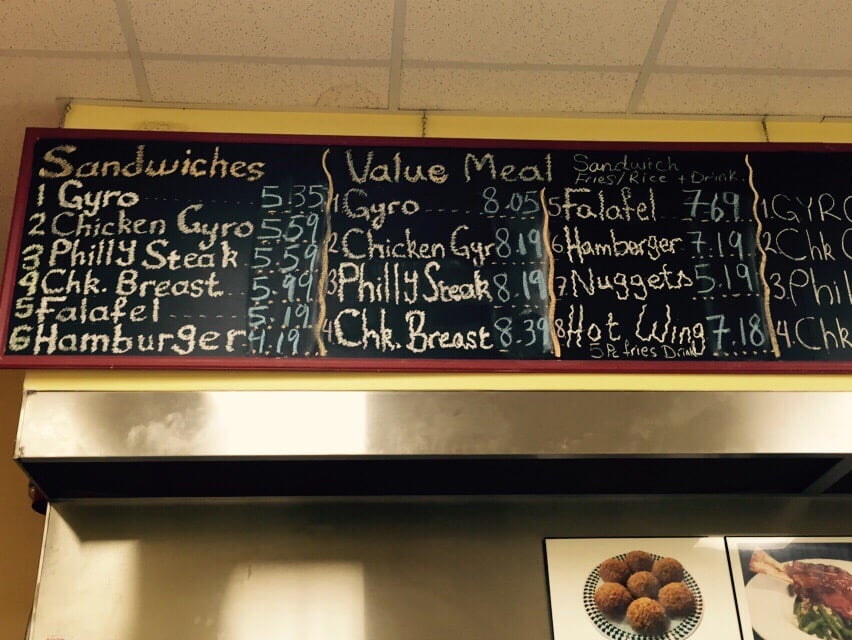 Sandwiches
1 Gyro 5.35
2 Chicken Gyro 5.59
3 Philly Steak 5.59
4 Chk. Breast 5.99
5 Falafel 5.19
6 Hamburger 4.19
Value Meal
Sandwich
Fries/Rice + Drink
1 Gyro 8.05
2 Chicken Gyr 8.19
3 Philly Steak 8.19
4 Chk. Breast 8.39
5 Falafel 7.69
6 Hamborger 7.19
7 Nuggets 5.19
8 Hot Wing 7.18
5 Pc fries Drink
1. GYRO
2 Chk
3. Phil
4. Chk